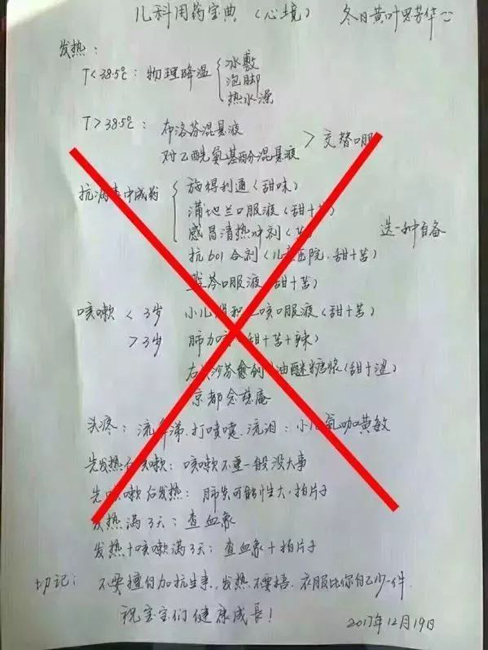 儿科用药宝典（心境） 冬日黄叶
发热：
T<38.5℃：物理降温 冰敷
泡脚
热水澡
T>38.5℃：布洛芬混悬液
对乙酰氨基酚混悬液 > 交替口服
抗病毒中成药 拔得利通（甜味）
蒲地兰口服液（甜+苦）
感冒清热冲剂（苦） 选一种自备
抗601合剂（儿童医院.甜+苦）
黄芩口服液（甜+苦）
咳嗽 < 3岁 小儿 积 咳口服液（甜+苦）
>3岁 肺力 （甜+苦+辣）
右 沙芬愈创 油醚糖浆（甜+涩）
京都念慈庵
头疼：流鼻涕.打喷嚏.流泪：小儿氨咖黄敏
先发热后咳嗽：咳嗽不重一般没大事
先咳嗽后发热：肺炎可能性大.拍片子
发热满3天：查血象
发热+咳嗽满3天：查血象+拍片子
切记：不要擅自加抗生素.发热不要捂.衣服比你自己少一件.
祝宝宝们健康成长！
2017年12月19日